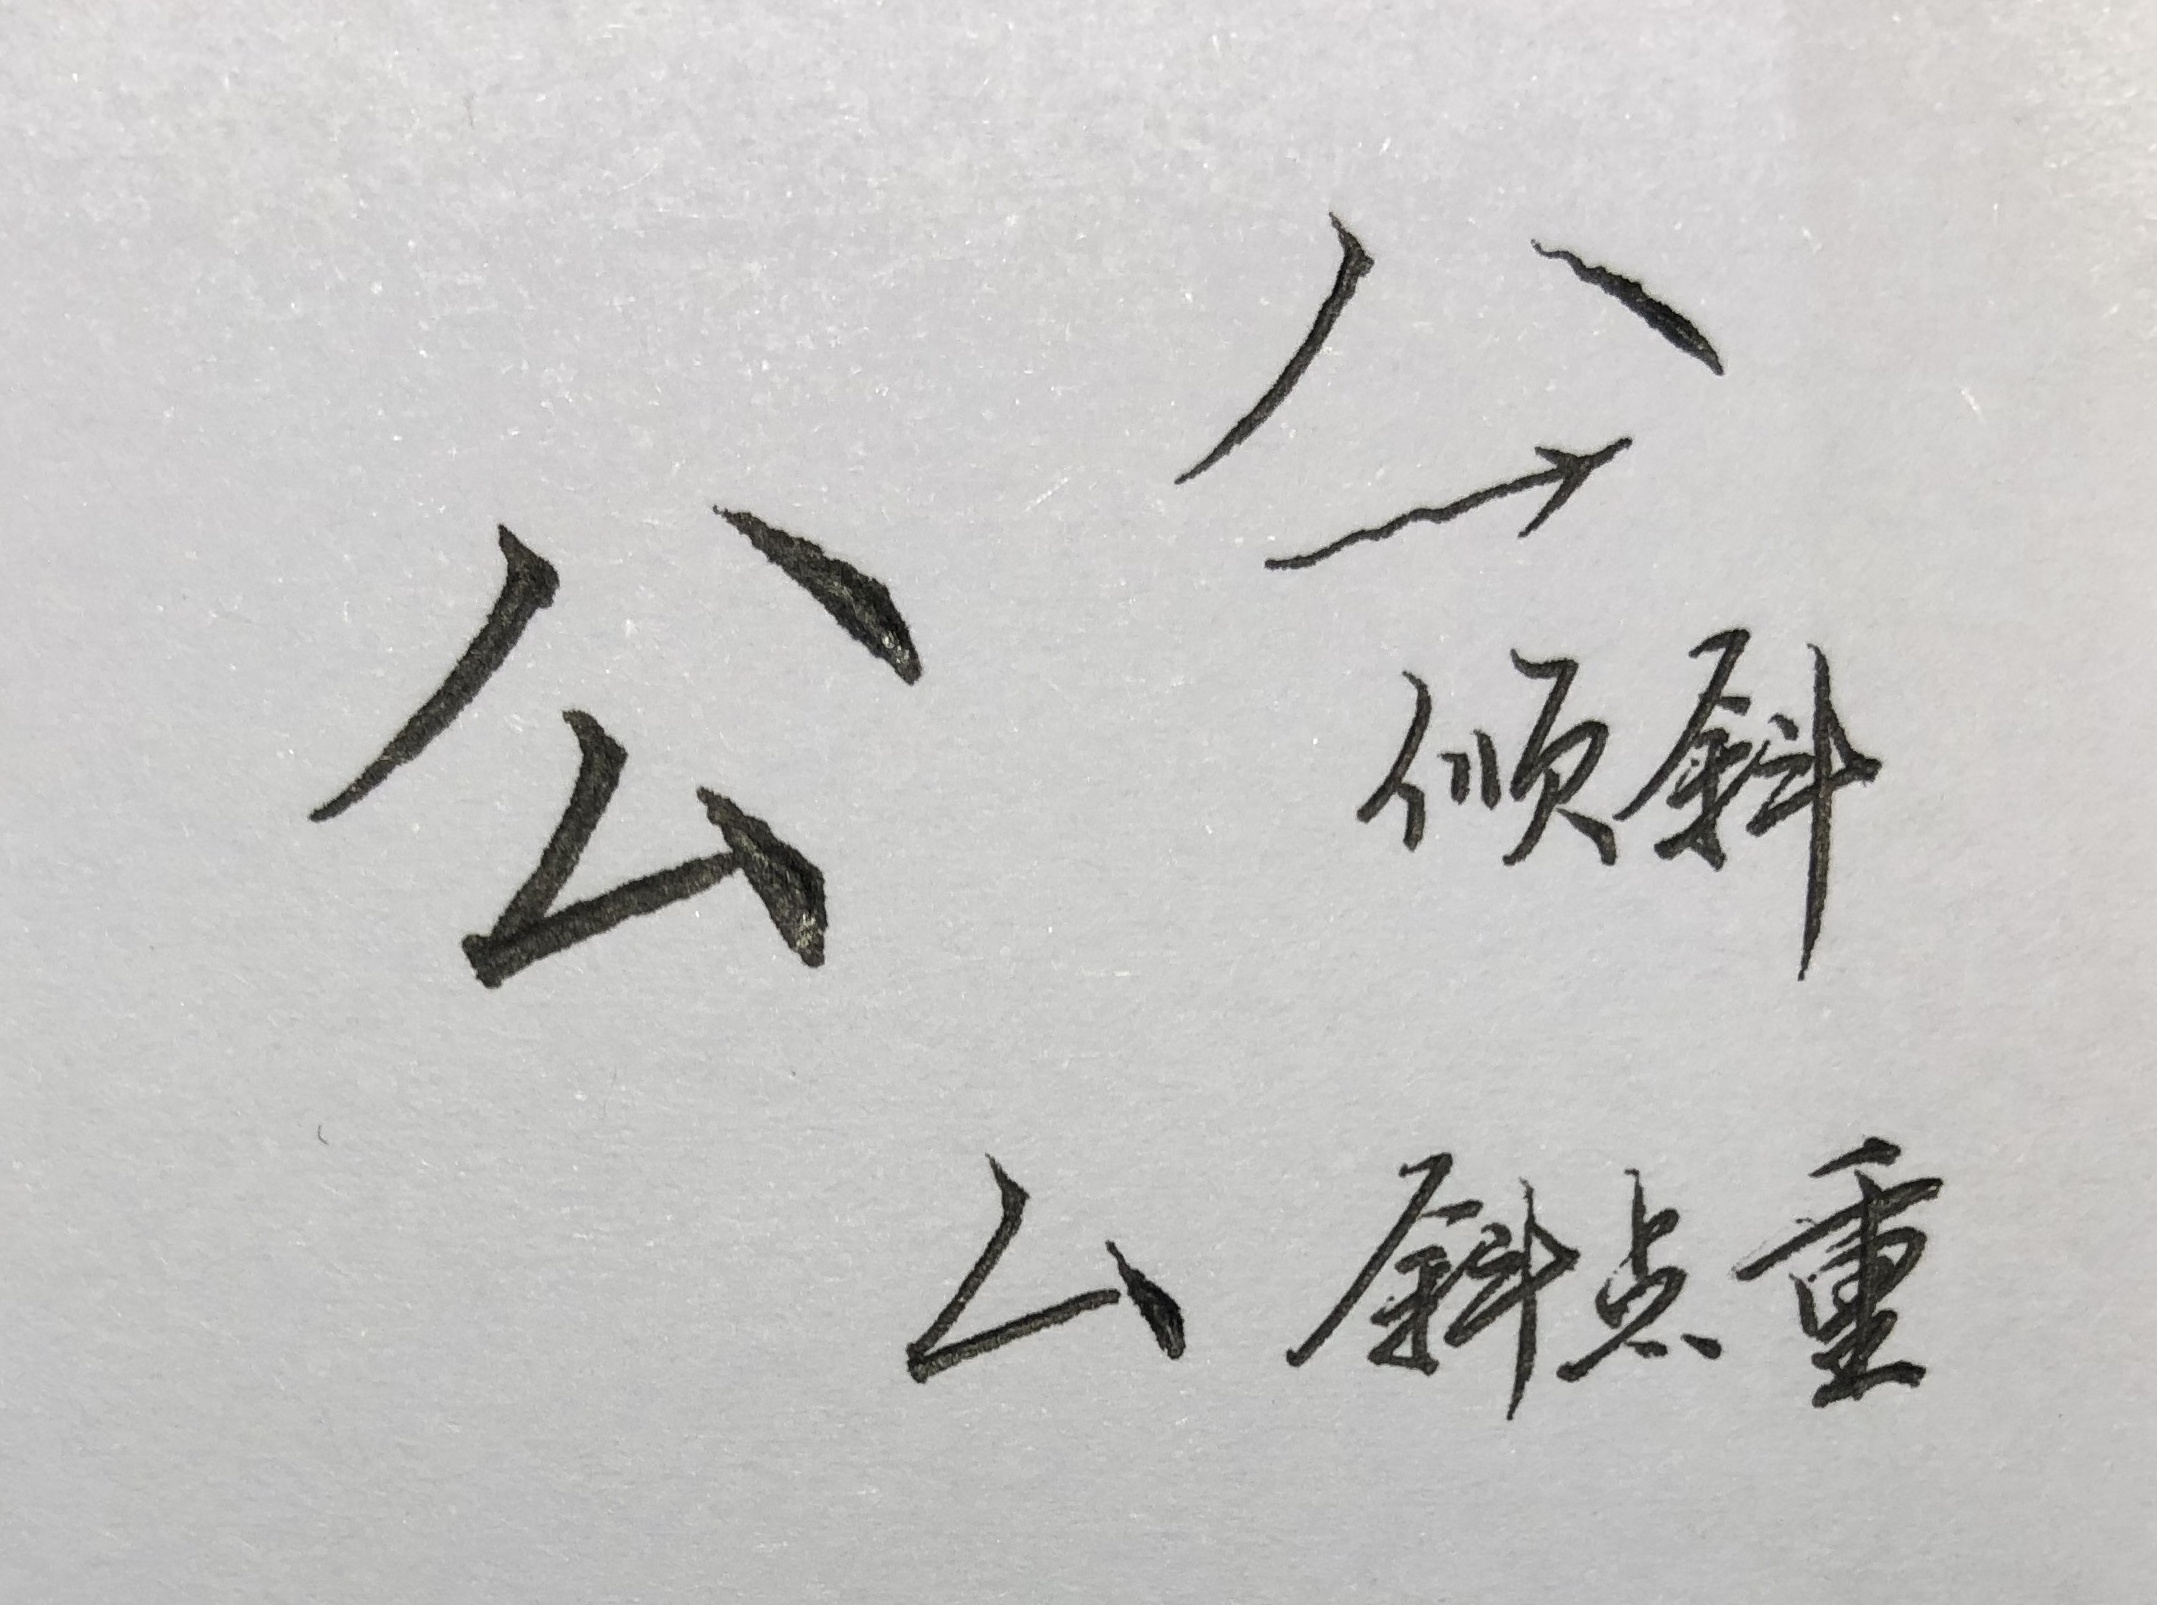 八
公
倾斜
厶 斜点重